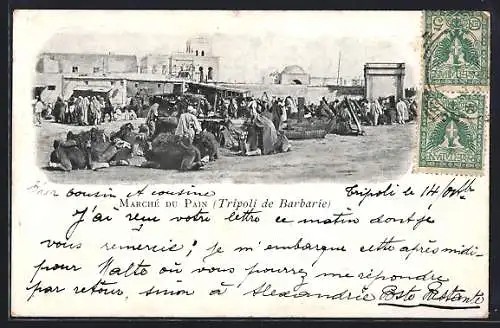 Cher cousin et cousine
Tripoli le 14 8bre
MARCHÉ DU PAIN (Tripoli de Barbarie)
J'ai reçu votre lettre ce matin dont je
vous remercie; je m'embarque cette après midi
pour Malte où vous pouvez me répondre
par retour, sinon à Alexandrie Poste Restante